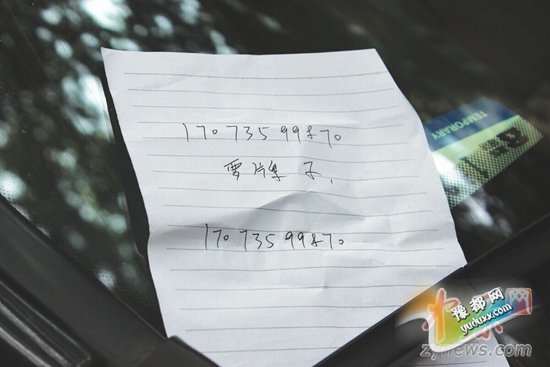 170 735 99870
要牌子.
170 735 99870
TEMPORARY
豫都网
yuduxx.com
zynews.com